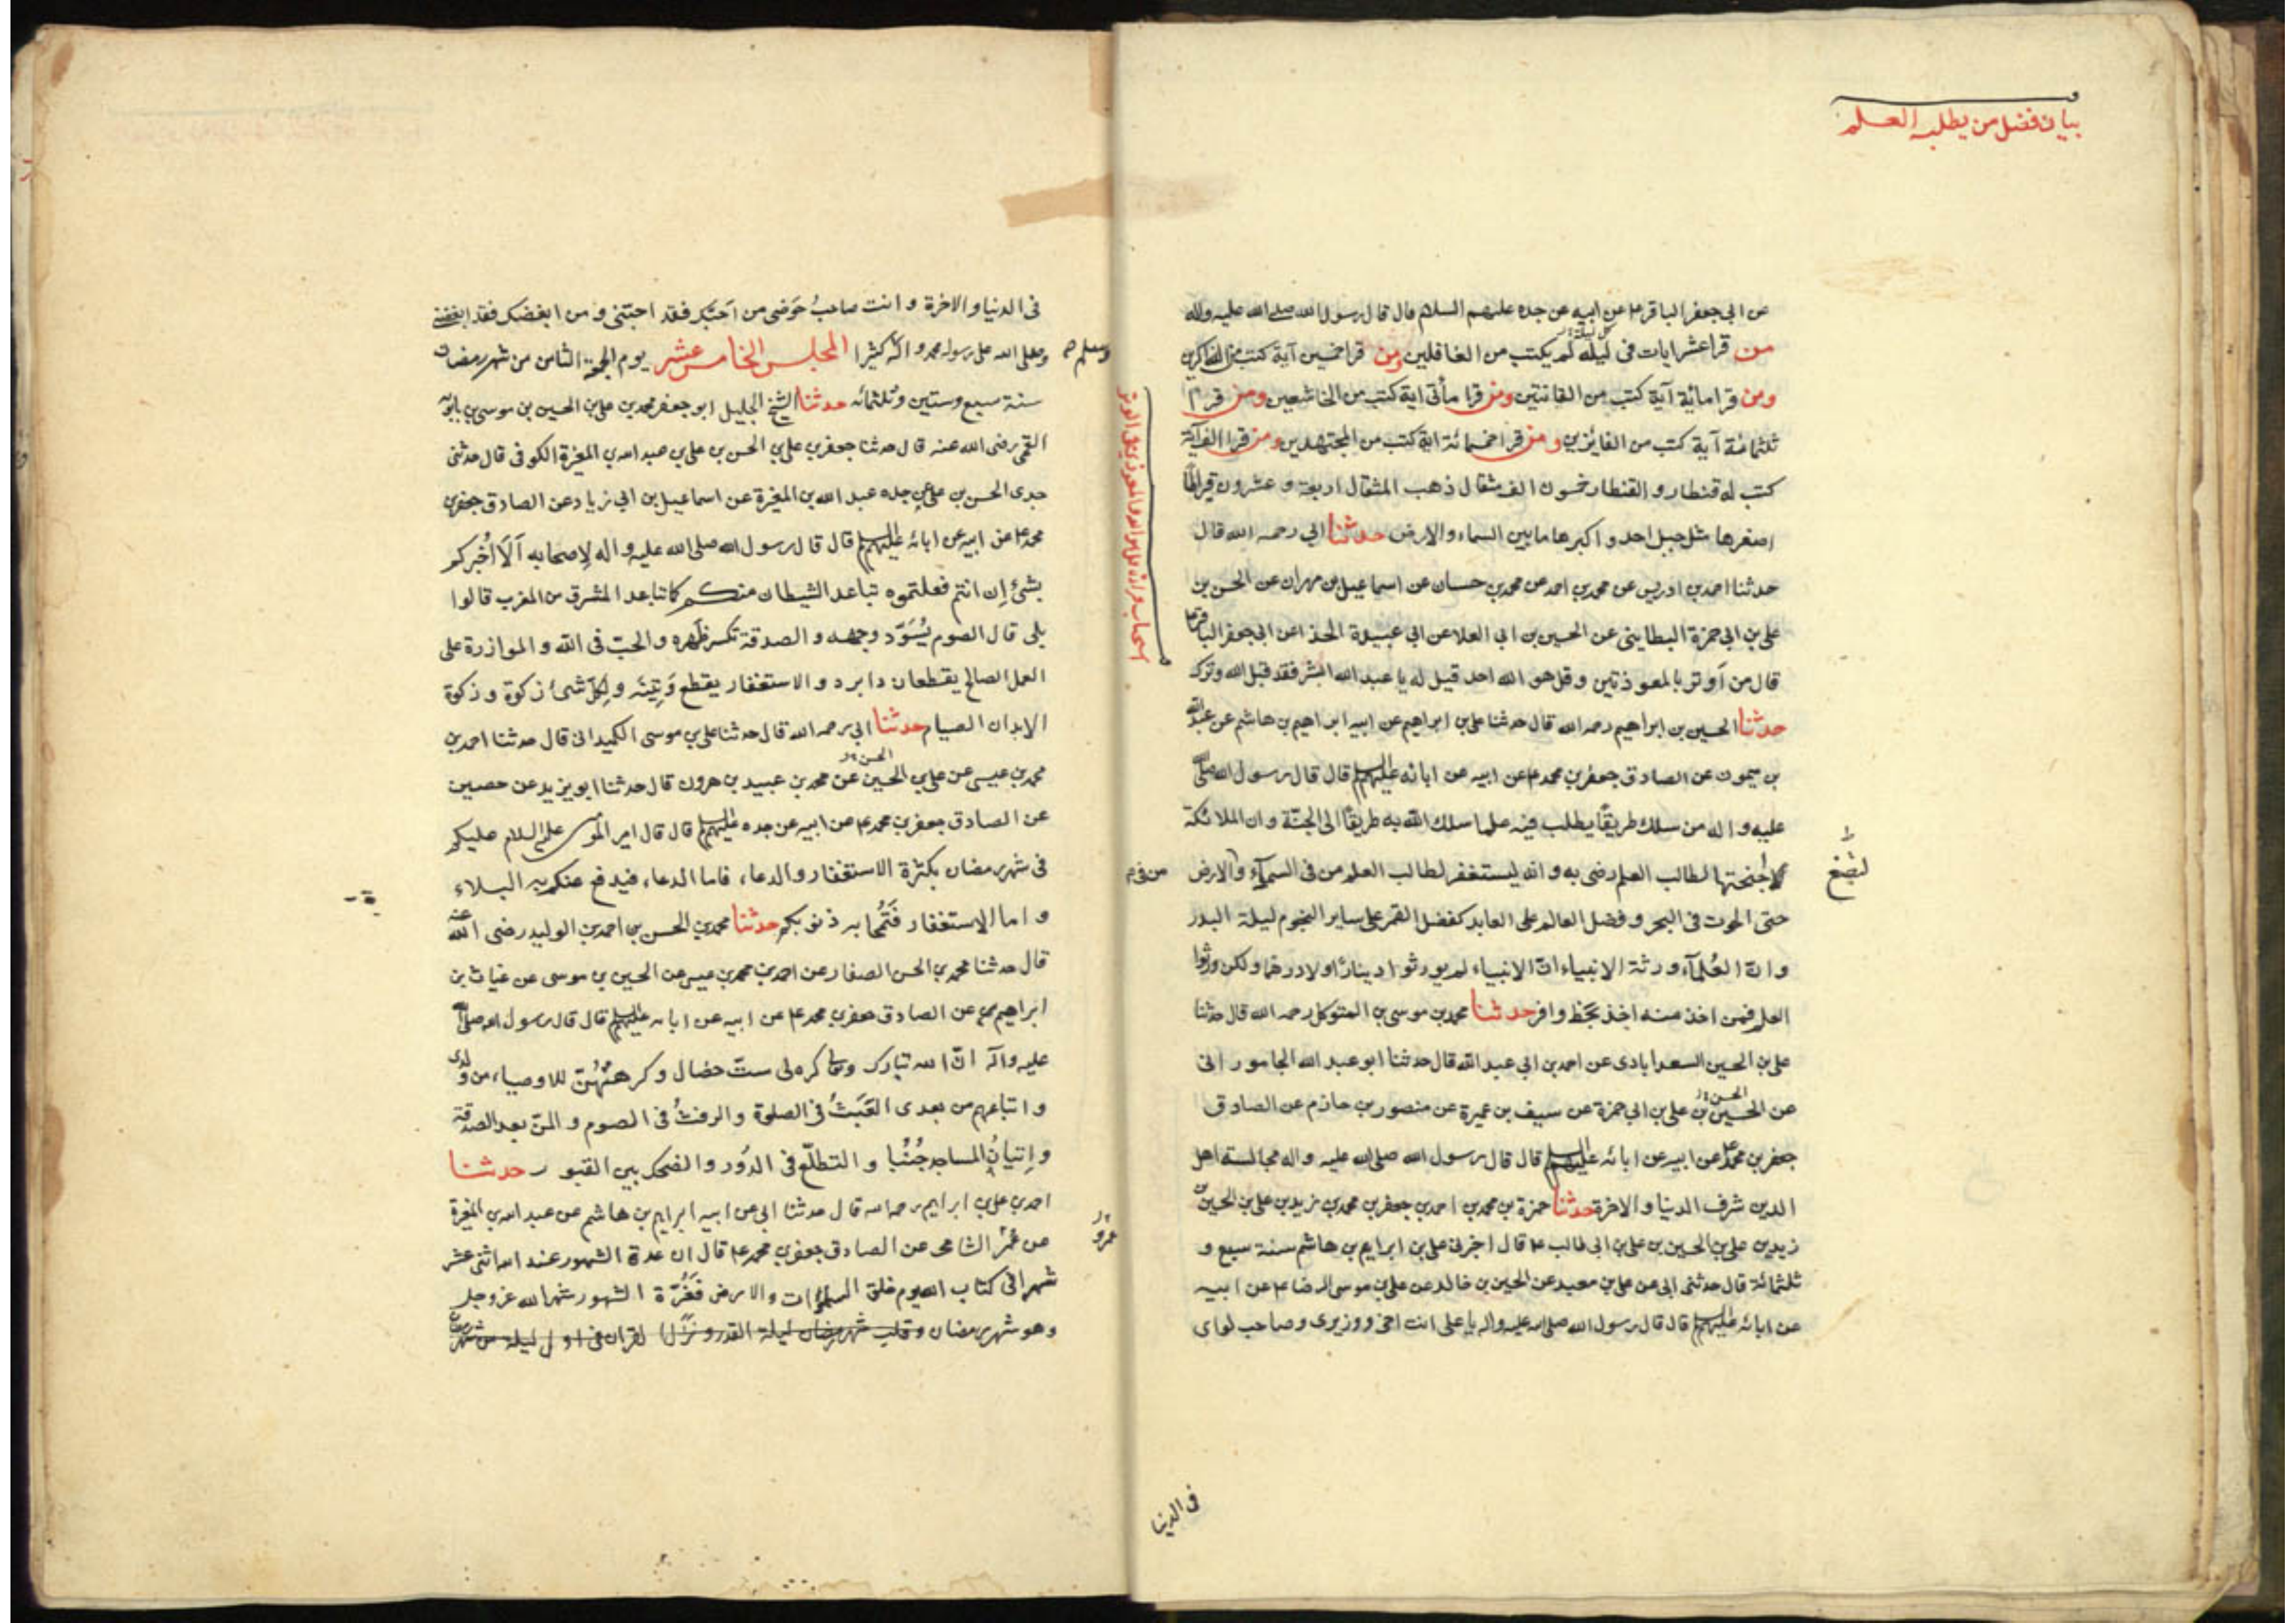 بيان فضل من يطلب العلم
عن ابي جعفر الباقر ع عن ابيه عن جده عليهم السلام قال قال رسول الله صلى الله عليه واله
من قرا عشر ايات في ليلة لم يكتب من الغافلين ومن قرا خمسين آية كتب من الذاكرين
ومن قرا مائة آية كتب من القانتين ومن قرا مأتى اية كتب من الخاشعين ومن قرا
ثلثمائة آية كتب من الفائزين ومن قرا خمسمائة اية كتب من المجتهدين ومن قرا الف آية
كتب له قنطار والقنطار خمسون الف مثقال ذهب المثقال اربعة وعشرون قيراطا
اصغرها مثل جبل احد واكبرها ما بين السماء والارض حدثنا ابي رحمه الله قال
حدثنا احمد بن ادريس عن محمد بن احمد عن محمد بن حسان عن اسماعيل بن مهران عن الحسن بن
علي بن ابي حمزة البطايني عن الحسين بن ابي العلا عن ابي عبيدة الحذا عن ابي جعفر الباقر ع
قال من اَوتر بالمعوذتين وقل هو الله احد قيل له يا عبد الله ابشر فقد قبل الله وترك
حدثنا الحسين بن ابراهيم رحمه الله قال حدثنا علي بن ابراهيم عن ابيه ابراهيم بن هاشم عن عبد الله
بن ميمون عن الصادق جعفر بن محمد ع عن ابيه عن ابائه عليهم السلم قال قال رسول الله صلى الله
عليه واله من سلك طريقًا يطلب فيه علما سلك الله به طريقًا الى الجنّة وان الملائكة
لتضع
لاجنحتها لطالب العلم رضى به وانه ليستغفر لطالب العلم من في السمآء والارض
من في م
حتى الحوت في البحر وفضل العالم على العابد كفضل القمر على ساير النجوم ليلة البدر
وانّ العُلمآء ورثة الانبياء انّ الانبياء لم يورثوا دينارًا ولا درهما ولكن ورثوا
العلم فمن اخذ منه اخذ بحظ وافر حدثنا محمد بن موسى بن المتوكل رحمه الله قال حدثنا
علي بن الحسين السعدابادى عن احمد بن ابي عبد الله قال حدثنا ابو عبد الله الجامورانى
الحسن
عن الحسين بن علي بن ابي حمزة عن سيف بن عميرة عن منصور بن حازم عن الصادق
جعفر بن محمد ع عن ابيه عن ابائه عليهم السلم قال قال رسول الله صلى الله عليه واله مجالسة اهل
الدين شرف الدنيا والاخرة حدثنا حمزة بن محمد بن احمد بن جعفر بن محمد بن زيد بن علي بن الحسين بن
زيد بن علي بن الحسين بن علي بن ابي طالب ع قال اخبرنى علي بن ابراهيم بن هاشم سنة سبع و
ثلثمائة قال حدثنى ابي عن علي بن معبد عن الحسين بن خالد عن علي بن موسى الرضا ع عن ابيه
عن ابائه عليهم السلم قال قال رسول الله صلى الله عليه واله يا علي انت اخى ووزيرى وصاحب لواى
في الدنيا
في الدنيا والاخرة وانت صاحبُ حَوضى من اَحبّك فقد احبّنى ومن ابغضك فقد ابغضنى
وصلى الله على رسوله محمد واله كثيرا المجلس الخامس عشر يوم الجمعة الثامن من شهر رمضان
وسلم
سنة سبع وستين وثلثمائه حدثنا الشيخ الجليل ابو جعفر محمد بن علي بن الحسين بن موسى بن بابويه
القمى رضى الله عنه قال حدثنا جعفر بن علي بن الحسن بن علي بن عبد الله بن المغيرة الكوفى قال حدثنى
جدى الحسن بن علي عن جده عبد الله بن المغيرة عن اسماعيل بن ابي زياد عن الصادق جعفر بن
محمد ع عن ابيه عن ابائه عليهم السلم قال قال رسول الله صلى الله عليه واله لِاصحابه اَلَا اُخبركم
بشئ اِن انتم فعلتموه تباعد الشيطان منكم كما تباعد المشرق من المغرب قالوا
بلى قال الصوم يُسَوّد وجهه والصدقة تكسر ظَهره والحبّ في الله والموازرة على
العمل الصالح يقطعان دابره والاستغفار يقطع وَتِينَه ولِكلّ شئ زكوة وزكوة
الابدان الصيام حدثنا ابي رحمه الله قال حدثنا علي بن موسى الكميدانى قال حدثنا احمد بن
الحسن
محمد بن عيسى عن علي بن الحسين عن محمد بن عبيد بن هرون قال حدثنا ابو يزيد عن حصين
عن الصادق جعفر بن محمد ع عن ابيه عن جده عليهم السلم قال قال امير المؤمنين عليه السلام عليكم
في شهر رمضان بكثرة الاستغفار والدعاء فاما الدعاء فيدفع عنكم به البلاء
واما الاستغفار فتُمحا به ذنوبكم حدثنا محمد بن الحسن بن احمد بن الوليد رضى الله عنه
قال حدثنا محمد بن الحسن الصفار عن احمد بن محمد بن عيسى عن الحسين بن موسى عن غياث بن
ابراهيم عن الصادق جعفر بن محمد ع عن ابيه عن ابائه عليهم السلم قال قال رسول الله صلى الله
عليه واله انّ الله تبارك وتعالى كره لى ستّ خصال وكرهتُهُنّ للاوصياء من ولدى
واتباعهم من بعدى العَبَثُ في الصلوة والرفثُ في الصوم والمنّ بعد الصدقة
واِتيانُ المساجد جُنُبا والتطلّع في الدُور والضحك بين القبور حدثنا
احمد بن علي بن ابراهيم رحمه الله قال حدثنا ابي عن ابيه ابراهيم بن هاشم عن عبد الله بن المغيرة
عمرو
عن عُمَر الشامى عن الصادق جعفر بن محمد ع قال ان عدة الشهور عند الله اثنى عشر
شهرا في كتاب الله يوم خلق السموات والارض فَغُرّة الشهور شهر الله عز وجل
وهو شهر رمضان وقلب شهر رمضان ليلة القدر ونزّل القران في اول ليلة من شهر رمضان